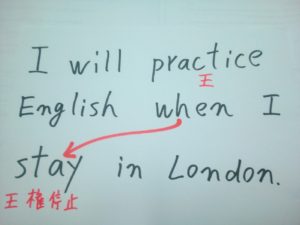 I will practice
王
English when I
stay in London.
王権停止